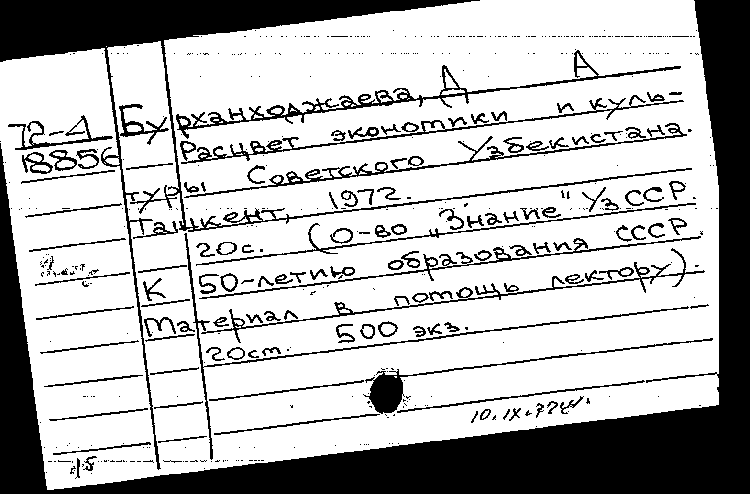 72-Д
18856
Бурханходжаева, Д А
Расцвет экономики и куль-
туры Советского Узбекистана.
Ташкент, 1972.
20с. (О-во „Знание" УзССР.
К 50-летию образования СССР.
Материал в помощь лектору).
20ст. 500 экз.
10.IX.72